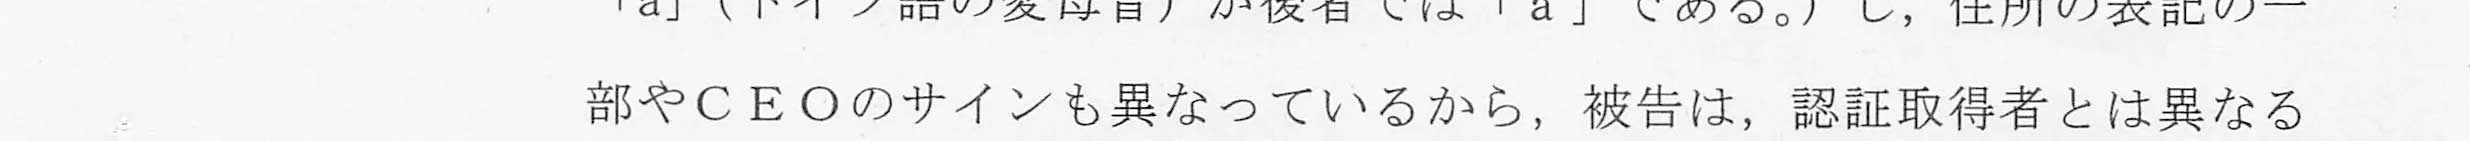 「a」(ドイツ語の変母音)が後者では「a」である。)し,住所の表記の一
部やCEOのサインも異なっているから,被告は,認証取得者とは異なる